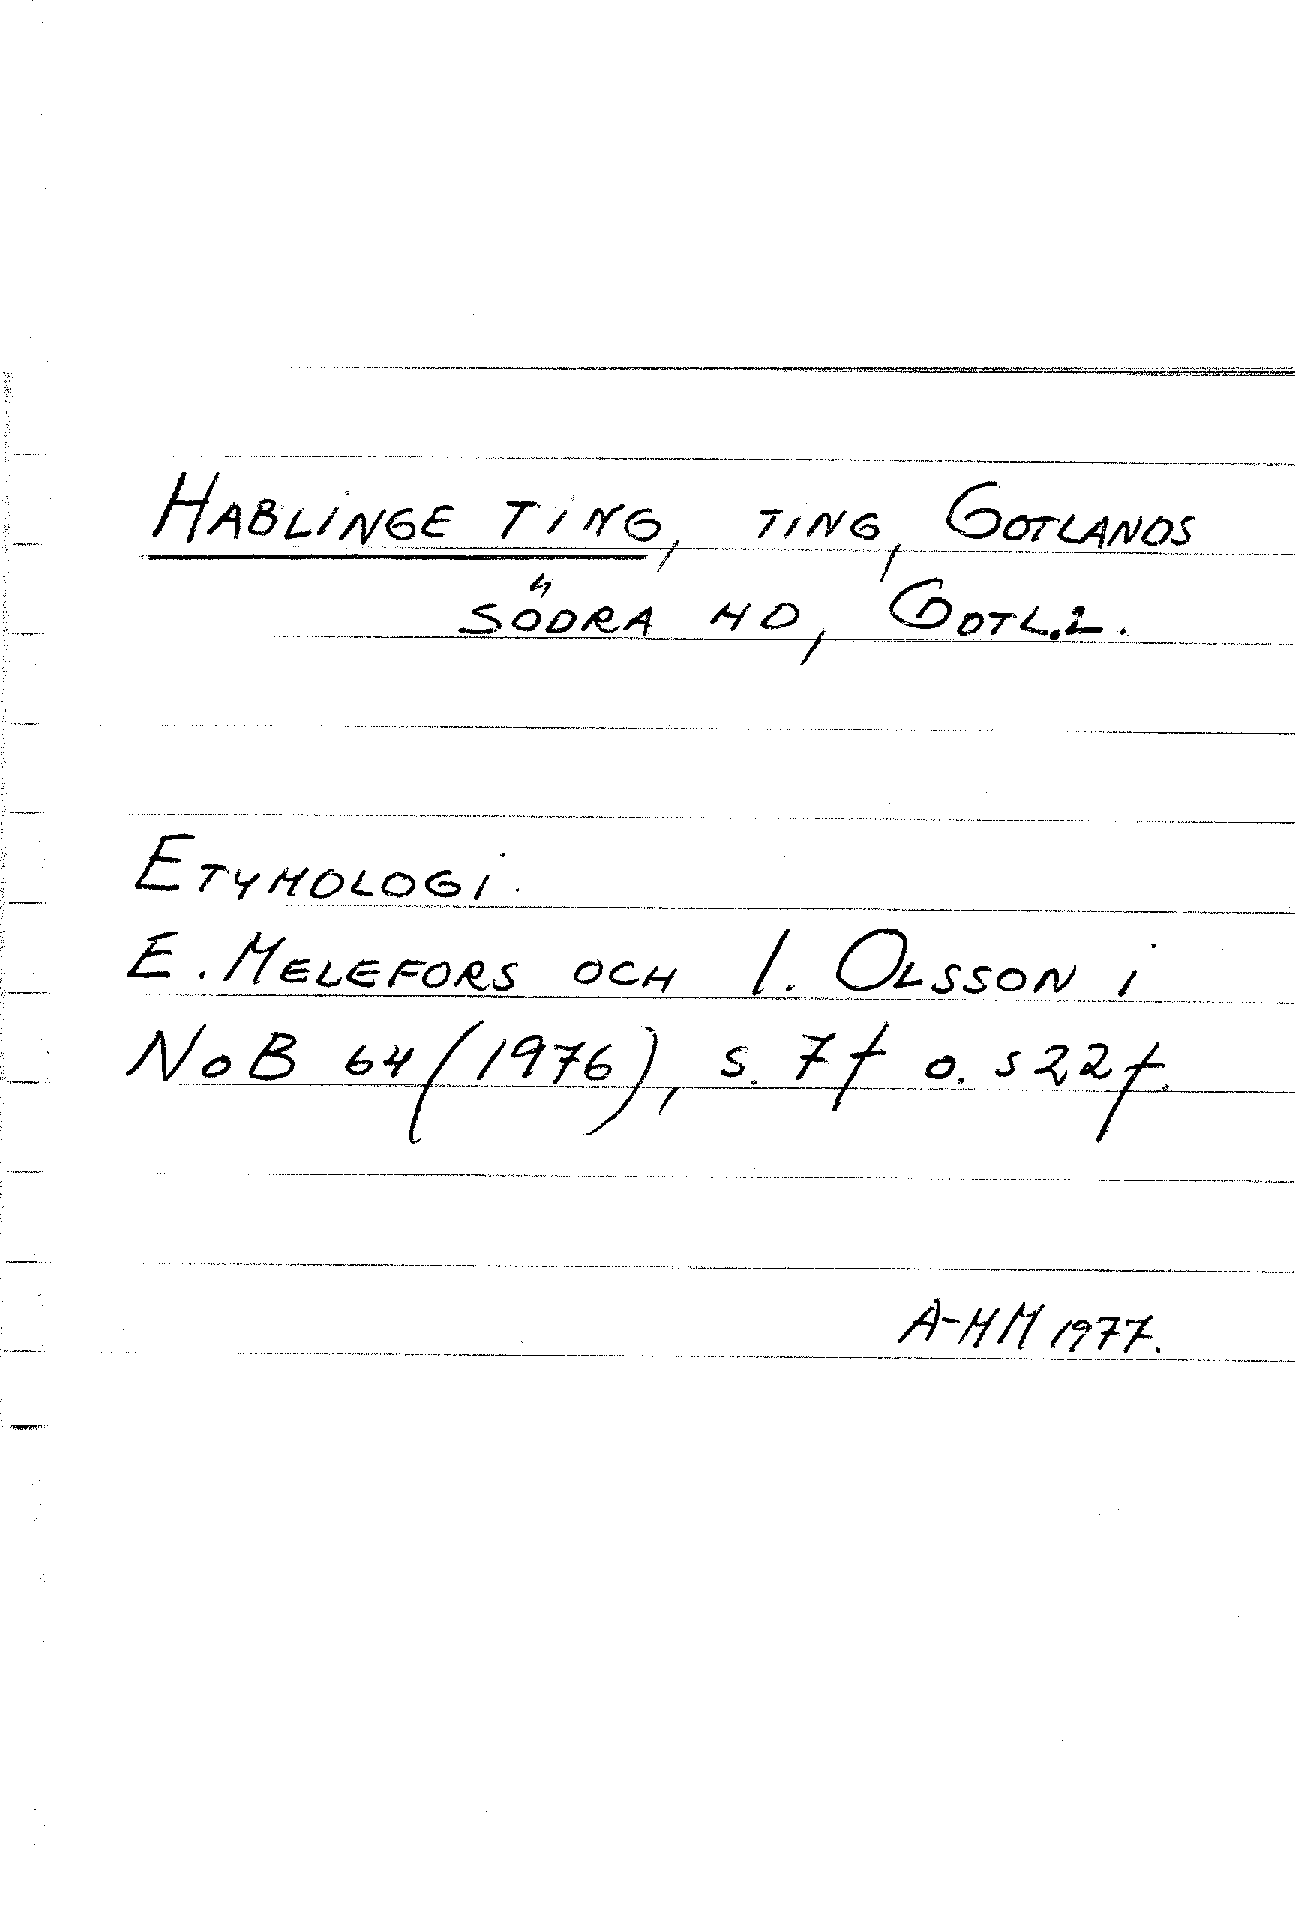 HABLINGE TING, TING, GOTLANDS
SÖDRA HD, GOTL.L.
ETYMOLOGI.
E. MELEFORS OCH I. OLSSON i
NoB 64 (1976), s. 7f o. s 22f.
A-MM 1977.